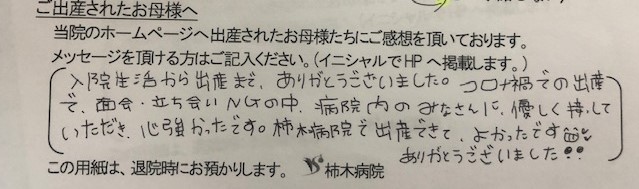 ご出産されたお母様へ
当院のホームページへ出産されたお母様たちにご感想を頂いております。
メッセージを頂ける方はご記入ください。(イニシャルでHPへ掲載します。)
入院生活から出産まで、ありがとうございました。コロナ禍での出産
で、面会・立ち会いNGの中、病院内のみなさんに、優しく接して
いただき、心強かったです。柿木病院で出産できて、よかったです
ありがとうございました!!
この用紙は、退院時にお預かりします。 柿木病院